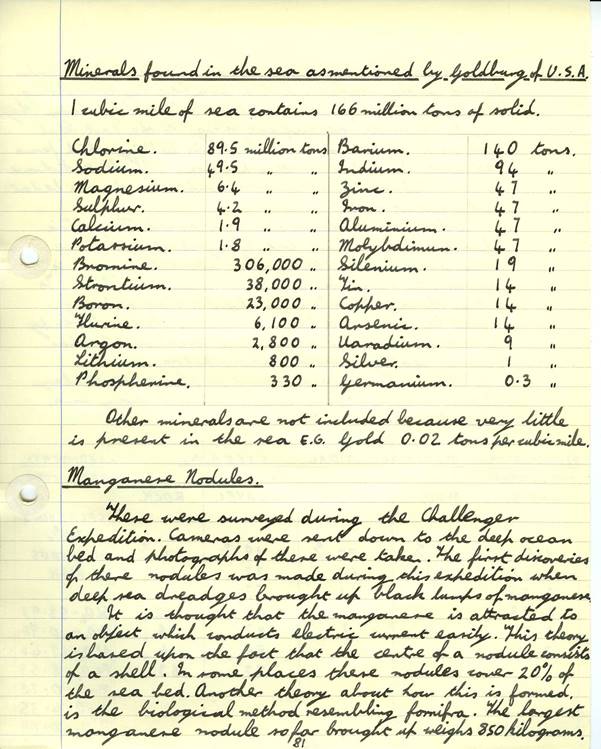 Minerals found in the sea as mentioned by Goldburg of U.S.A.
1 cubic mile of sea contains 166 million tons of solid.
Chlorine. 89.5 million tons Barium. 140 tons.
Sodium. 49.5 " " Indium. 94 "
Magnesium. 6.4 " " Zinc. 47 "
Sulphur. 4.2 " " Iron. 47 "
Calcium. 1.9 " " Aluminium. 47 "
Potassium. 1.8 " " Molybdimun. 47 "
Bromine. 306,000 " Silenium. 19 "
Strontium. 38,000 " Tin. 14 "
Boron. 23,000 " Copper. 14 "
Flurine. 6,100 " Arsenic. 14 "
Argon. 2,800 " Uaradium. 9 "
Lithium. 800 " Silver. 1 "
Phospherine. 330 " Germanium. 0.3 "
Other minerals are not included because very little
is present in the sea E.G. Gold 0.02 tons per cubic mile.
Manganese Nodules.
These were surveyed during the Challenger
Expedition. Cameras were sent down to the deep ocean
bed and photographs of these were taken. The first discoveries
of these nodules was made during this expedition when
deep sea dreadges brought up black lumps of manganese.
It is thought that the manganese is attracted to
an object which conducts electric current easily. This theory
is based upon the fact that the centre of a nodule consists
of a shell. In some places these nodules cover 20% of
the sea bed. Another theory about how this is formed,
is the biological method resembling fornifra. The largest
manganese nodule so far brought up weighs 350 kilograms.
81